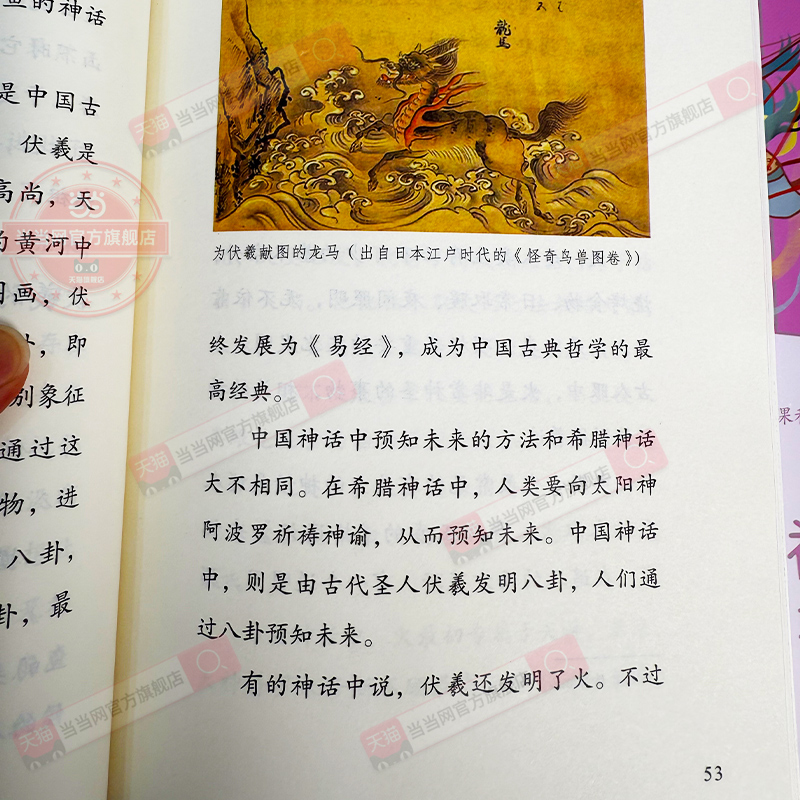 鱼的神话
是中国古
伏羲是
高尚，天
的黄河中
图画，伏
卦，即
别象征
通过这
物，进
八卦，
卦，最
龍馬
为伏羲献图的龙马（出自日本江户时代的《怪奇鸟兽图卷》）
终发展为《易经》，成为中国古典哲学的最
高经典。
中国神话中预知未来的方法和希腊神话
大不相同。在希腊神话中，人类要向太阳神
阿波罗祈祷神谕，从而预知未来。中国神话
中，则是由古代圣人伏羲发明八卦，人们通
过八卦预知未来。
有的神话中说，伏羲还发明了火。不过
53
天猫 当当网官方旗舰店
天猫 当当网官方旗舰店
天猫 当当网官方旗舰店
天猫 当当网官方旗舰店
天猫 当当网官方旗舰店
天猫 当当网官方旗舰店
天猫 当当网官方旗舰店
当当网官方旗舰店